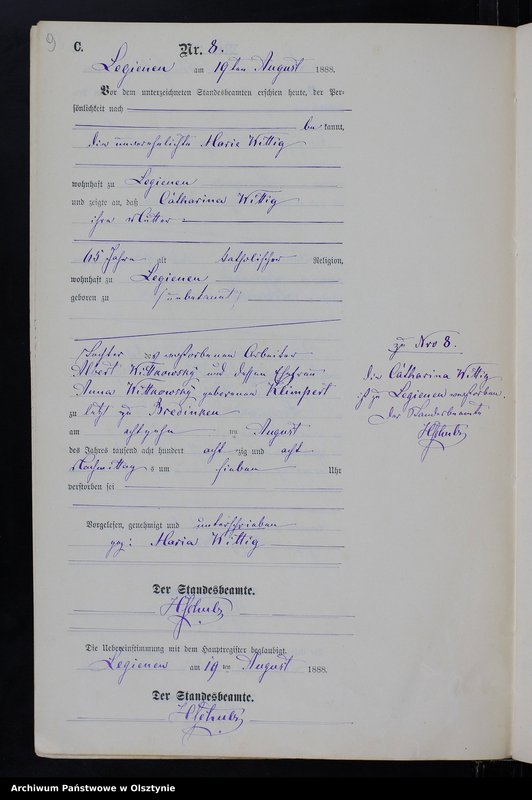 9
C.
Nr. 8.
Legienen am 19ten August 1888.
Vor dem unterzeichneten Standesbeamten erschien heute, der Per-
sönlichkeit nach
be kannt,
die unverehelichte Marie Wittig
wohnhaft zu Legienen
und zeigte an, daß Catharina Wittig
ihre Mutter
65 Jahre alt katholischer Religion,
wohnhaft zu Legienen
geboren zu (unbekannt)
Tochter des verstorbenen Arbeiter
Albert Wittkowsky und dessen Ehefrau
Anna Wittkowsky geborenen Klimpert
zu letzt zu Bredinken
am achtzehn ten August
des Jahres tausend acht hundert acht zig und acht
Nachmittags um sieben Uhr
verstorben sei
Vorgelesen, genehmigt und unterschrieben
gez: Maria Wittig
Der Standesbeamte.
Die Uebereinstimmung mit dem Hauptregister beglaubigt.
Legienen am 19 ten August 1888.
Der Standesbeamte.
zu Nro 8.
die Catharina Wittig
ist zu Legienen verstorben.
Der Standesbeamte
Archiwum Państwowe w Olsztynie